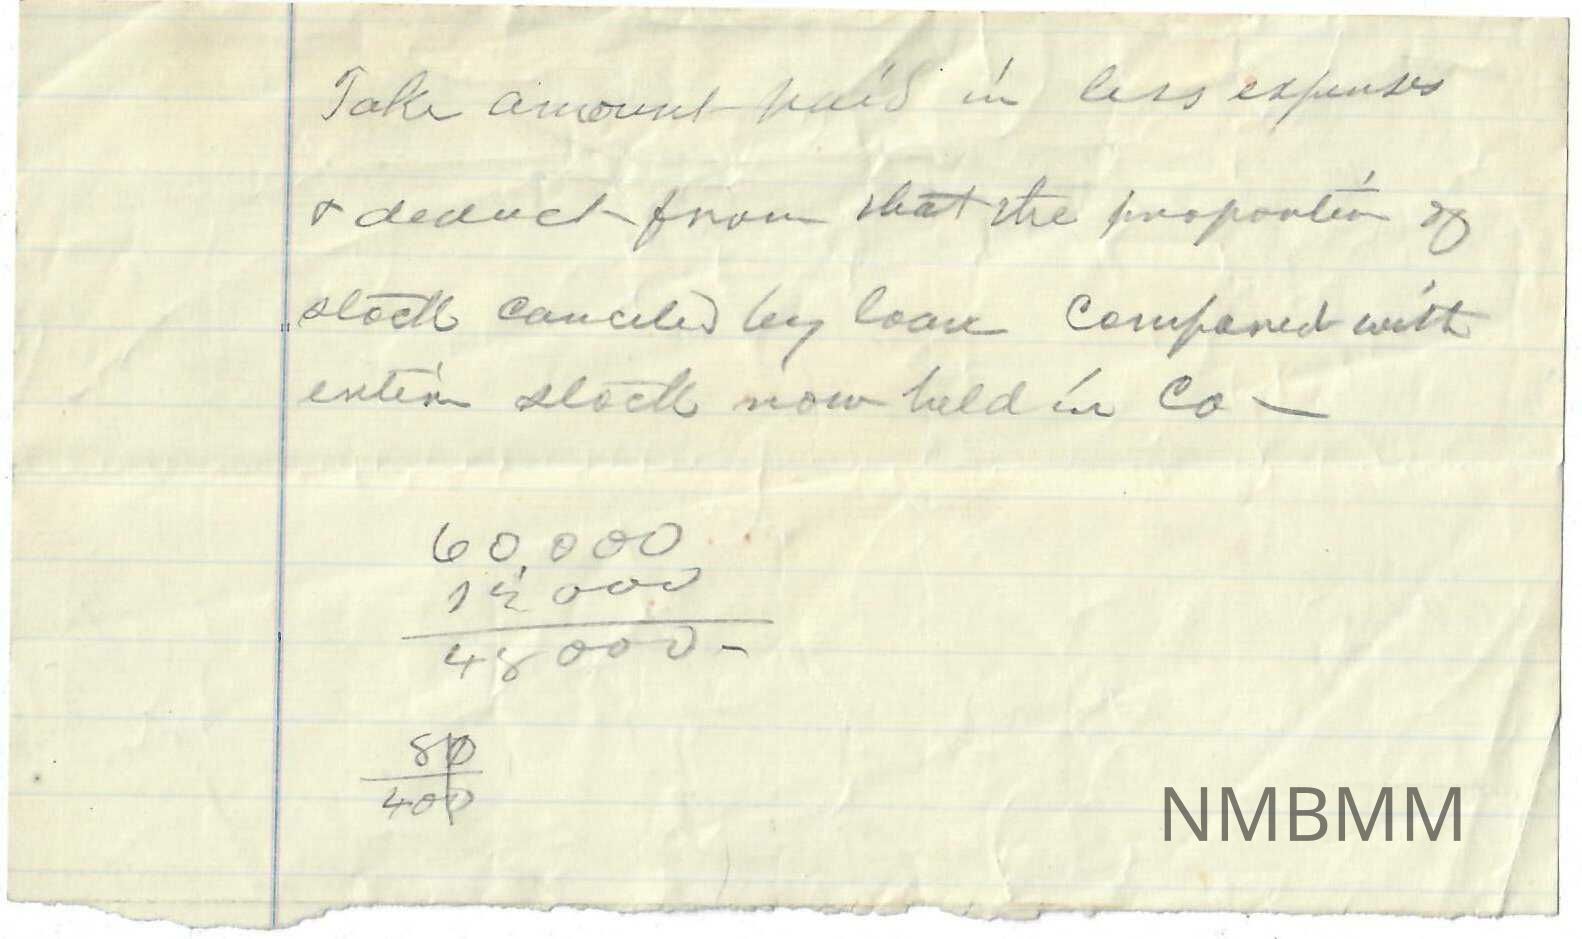 Take amount paid in less expenses
& deduct from that the proportion of
stock canceled by loan Compared with
entire stock now held in Co —
60,000
12,000
48000 -
80
400
NMBMM